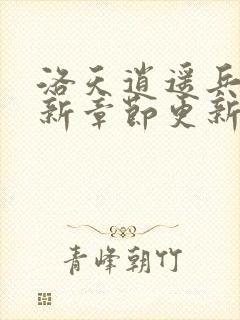 洛天逍遥兵
新章节更新
青峰朝竹